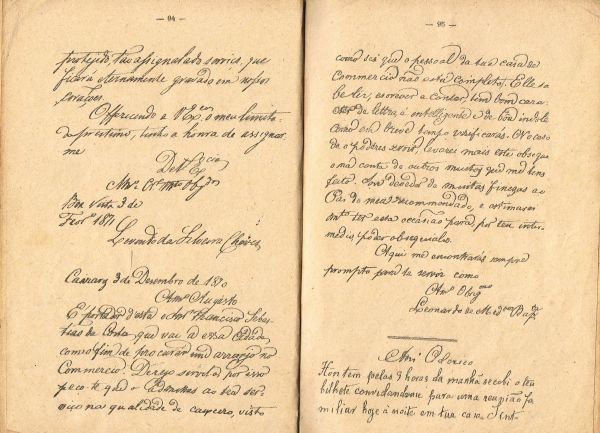 — 94 —
protejido, tão assignalado serviço, que
ficará eternamente gravado em nossos
corações.
Offerecendo a V. Ex.cia o meu limita-
do prestimo, tenho a honra de assignar-
me
De V. Ex.cia
Am.º Cr.º
Vista 3 de
Fev.º 1871
Silveira Chaves
3 de Dezembro de 1870
Am.º Augusto
O portador d'esta é Snr. Francisco Sebas-
tião da Costa, que vai a essa Cidade
com o fim de procurar um arranjo no
Commercio. Desejo servil-o, por isso
peço-te que o ao teu ser-
viço na qualidade de caixeiro, visto
— 95 —
como sei que o pessoal da tua casa de
commercio não está completo. Elle sa-
be ler, escrever e contar, tem bom cara-
cter de letra, é intelligente e de boa indole
como em breve tempo verificarás. No caso
de o poderes servir, levarás mais este obsequi-
o má conta de outros muitos que me tens
feito. Sou devedor de muitas finezas ao
Pae do meu recommendado, e estimarei
m.to ter esta occasião para, por teu inter-
medio, poder obsequial-o.
Aqui me encontrarás sempre
prompto para te servir como
Am.º Obrg.mo
Leonardo de
Am.º Odorico
Hontem pelas 9 horas da manhã recebi o teu
bilhete convidando-me para uma reunião fa-
miliar hoje á noite em tua casa. Sint-